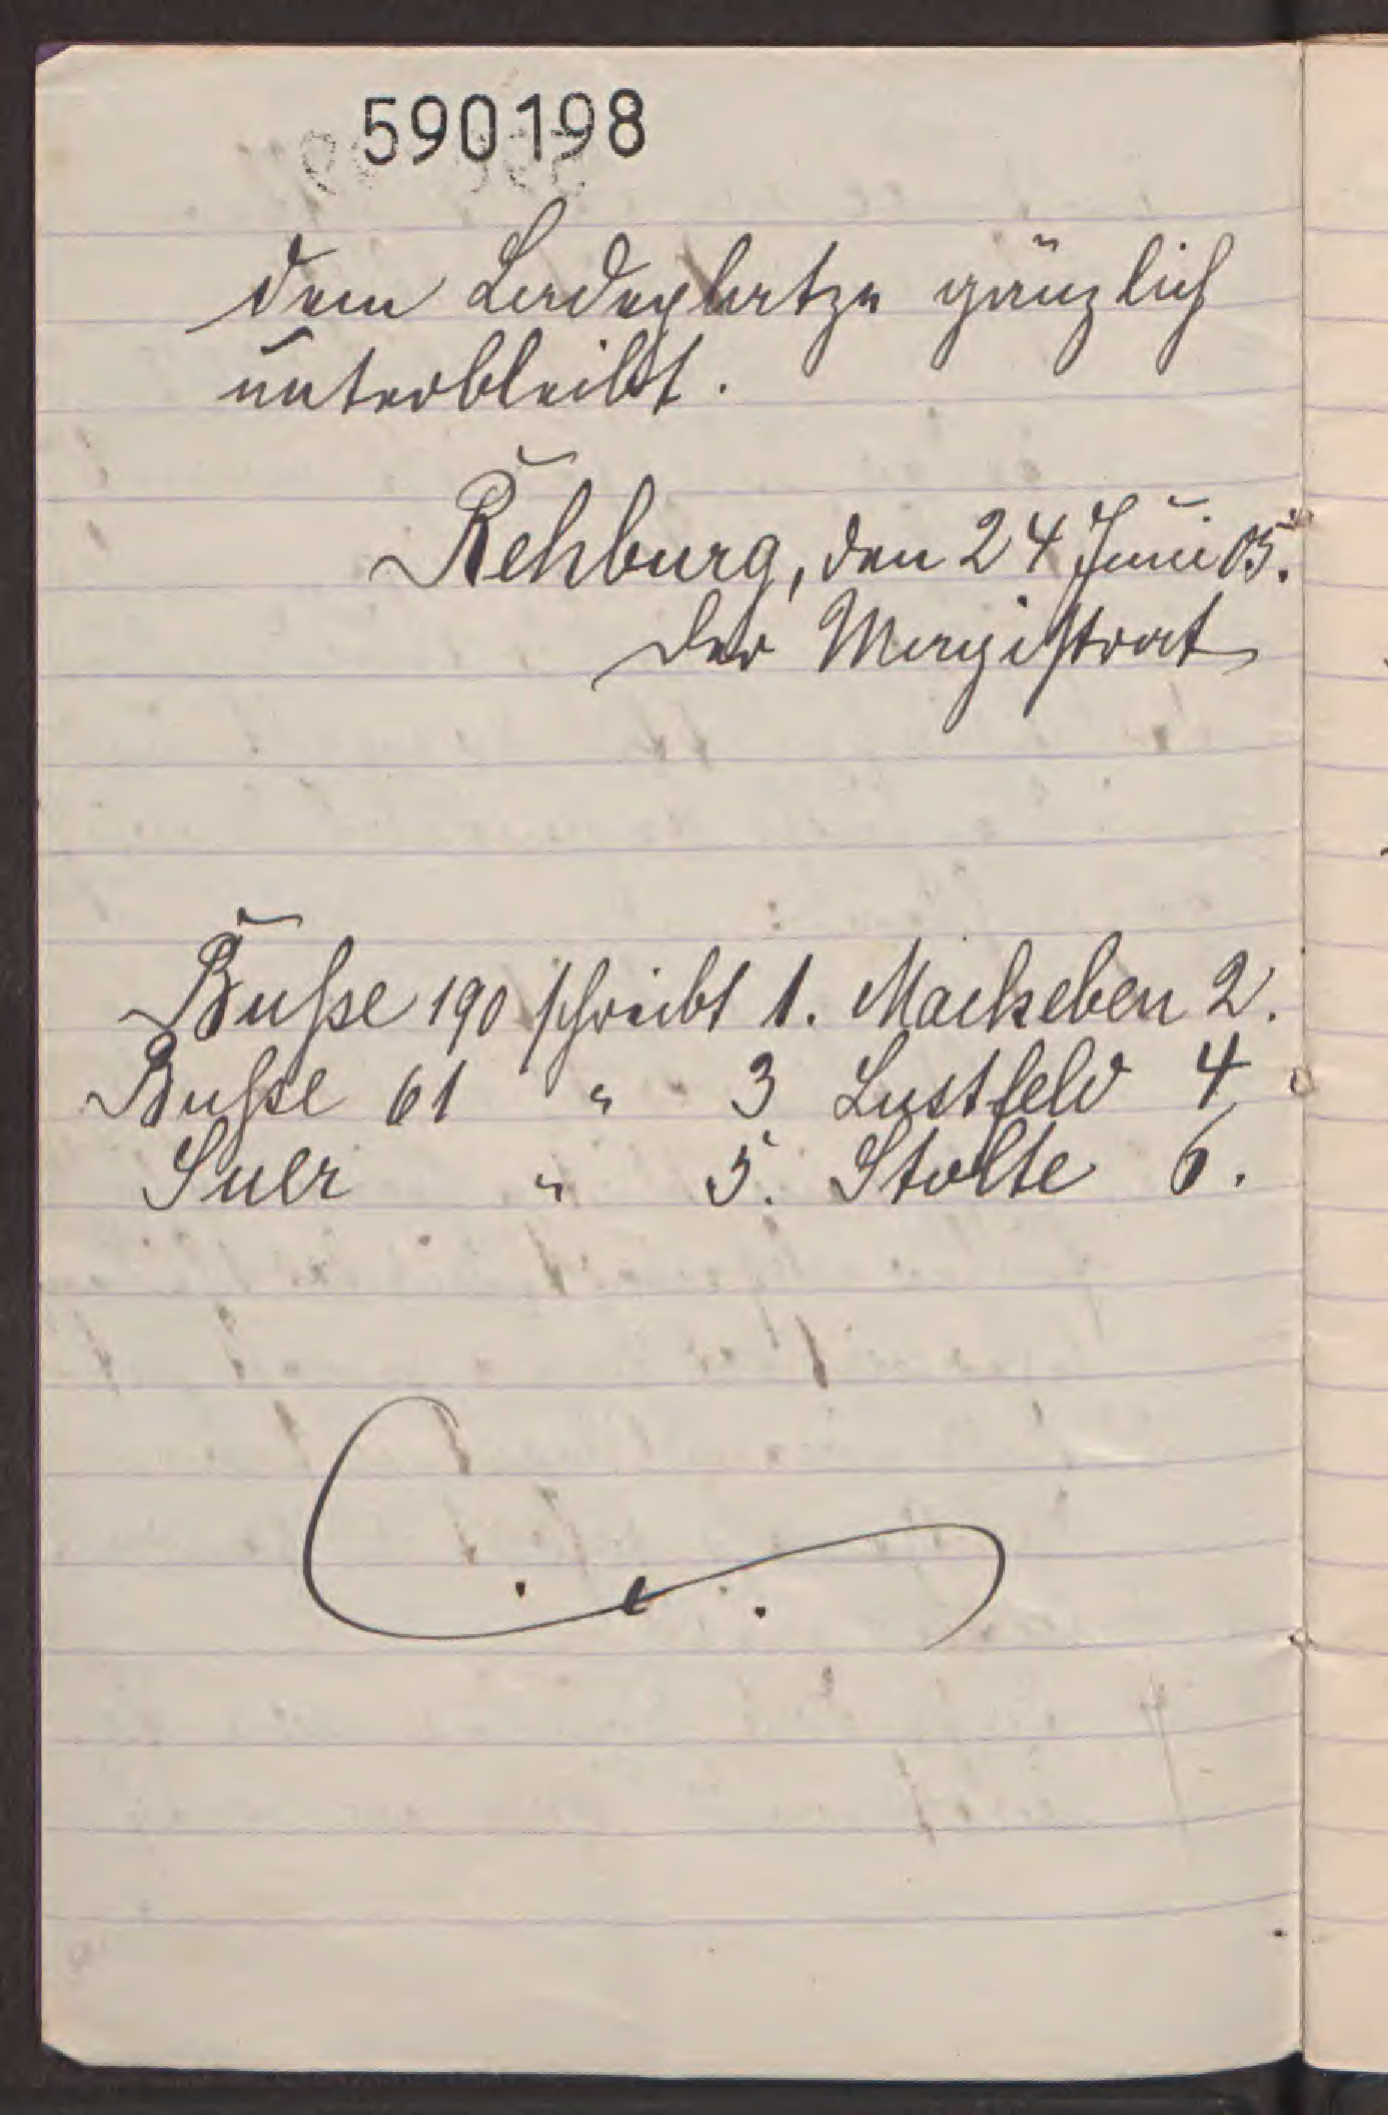 590198
dem Ladeplatze gänzlich
unterbleibt.
Rehburg, den 24 Juni 05.
Der Magistrat
Bußse 190 schreibt 1. Mackeben 2.
Bußse 61 " 3 Lustfeld 4
Suer " 5. Stolte 6.